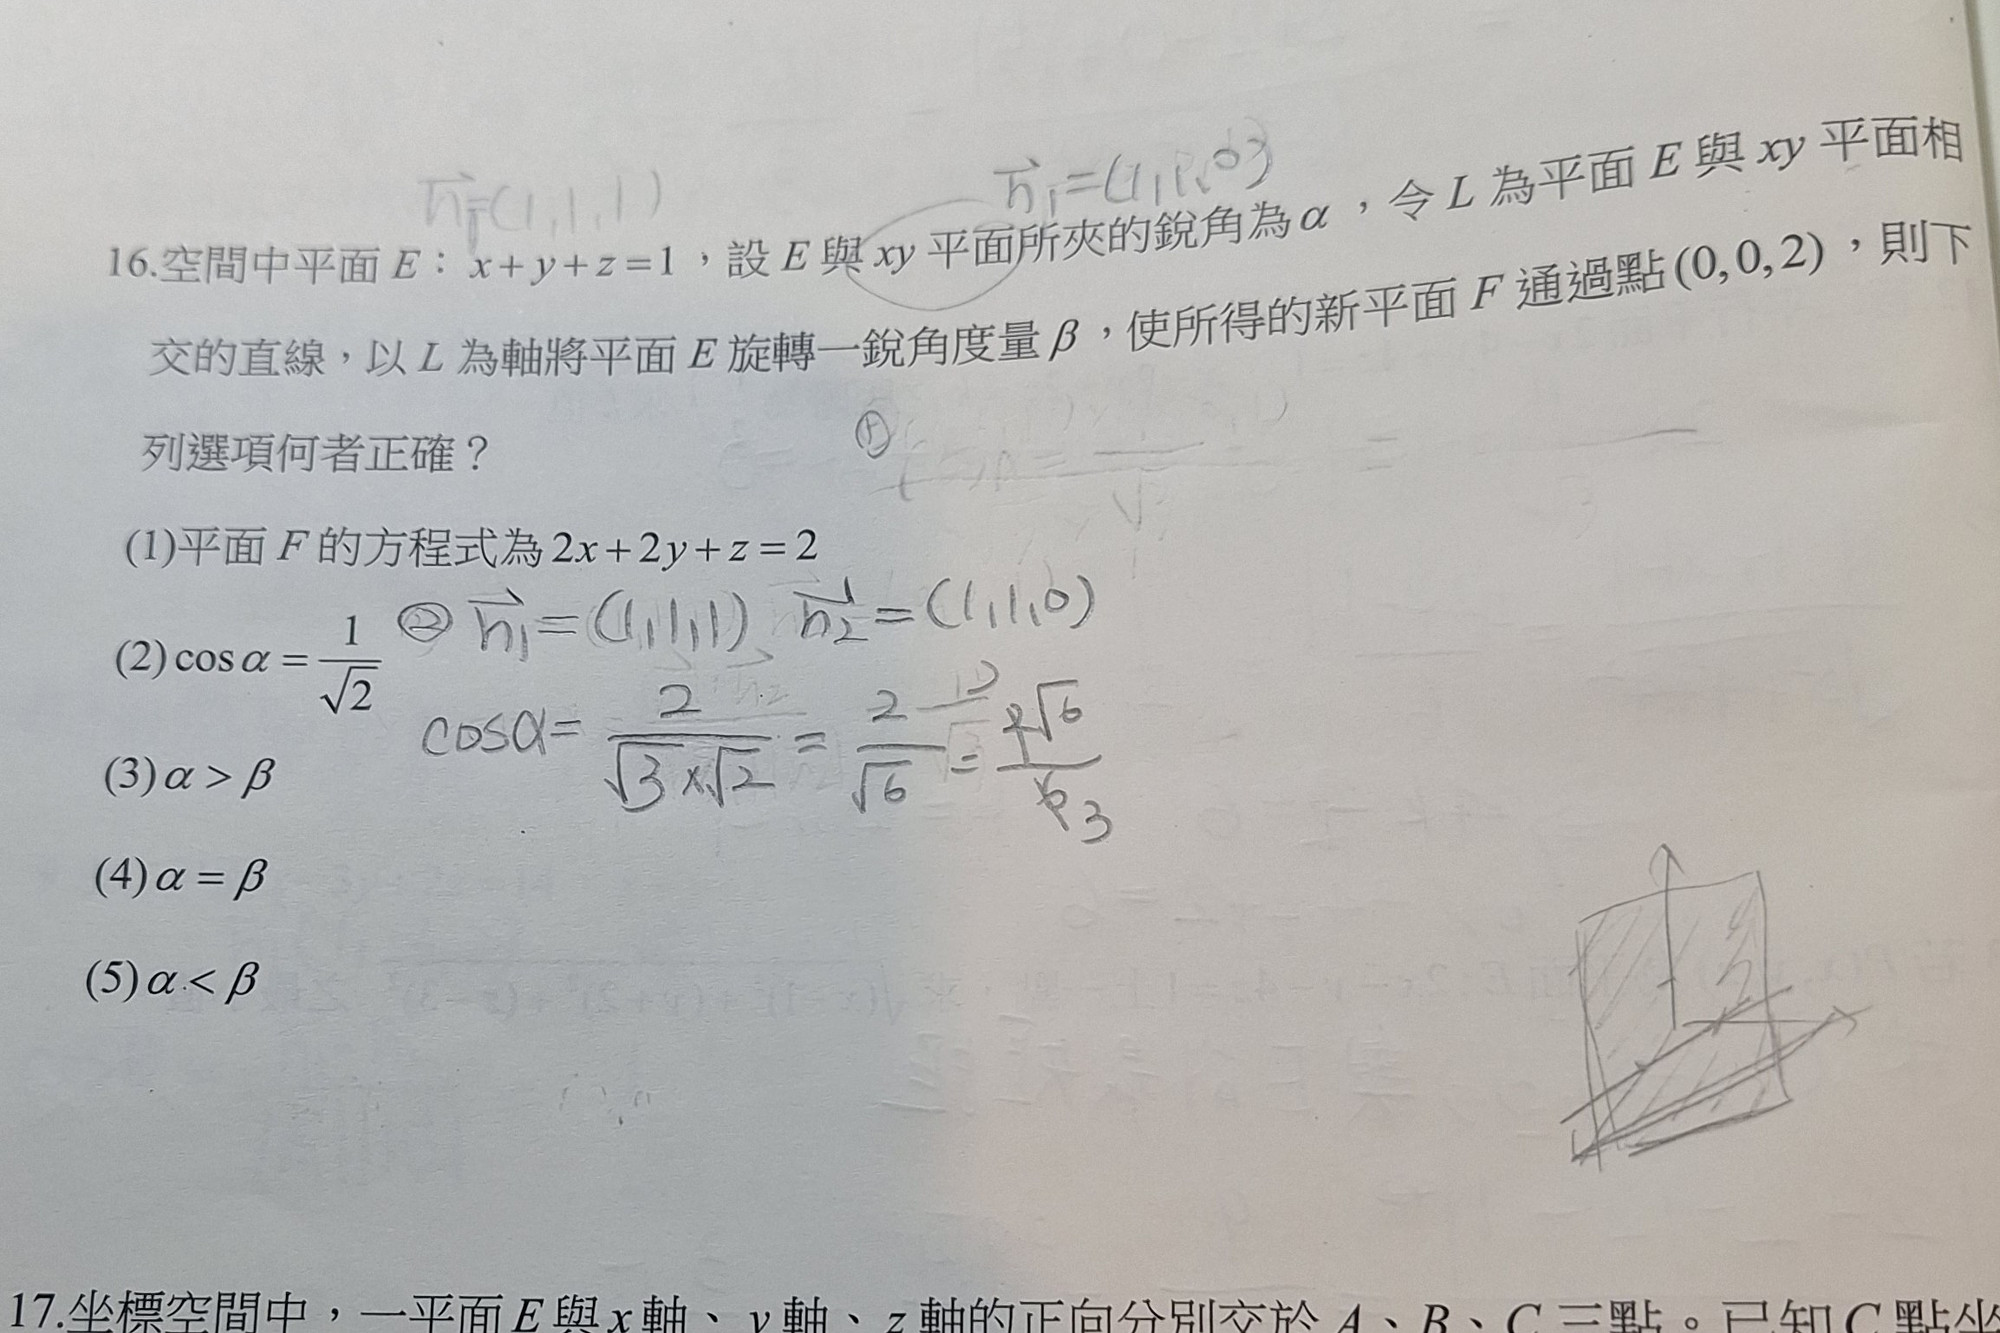 n₁=(1,1,1)
n₁=(1,1,0)
16.空間中平面 E：x+y+z=1，設 E 與 xy 平面所夾的銳角為α，令 L 為平面 E 與 xy 平面相
交的直線，以 L 為軸將平面 E 旋轉一銳角度量β，使所得的新平面 F 通過點(0,0,2)，則下
列選項何者正確？
①
(1)平面 F 的方程式為2x+2y+z=2
② n₁=(1,1,1) n₂=(1,1,0)
(2)cosα=1/√2
cosα=2/(√3×√2)=2/√6=2√6/6 3
(3)α>β
(4)α=β
(5)α<β
17.坐標空間中，一平面 E 與 x 軸、y 軸、z 軸的正向分別交於 A、B、C 三點。已知 C 點坐